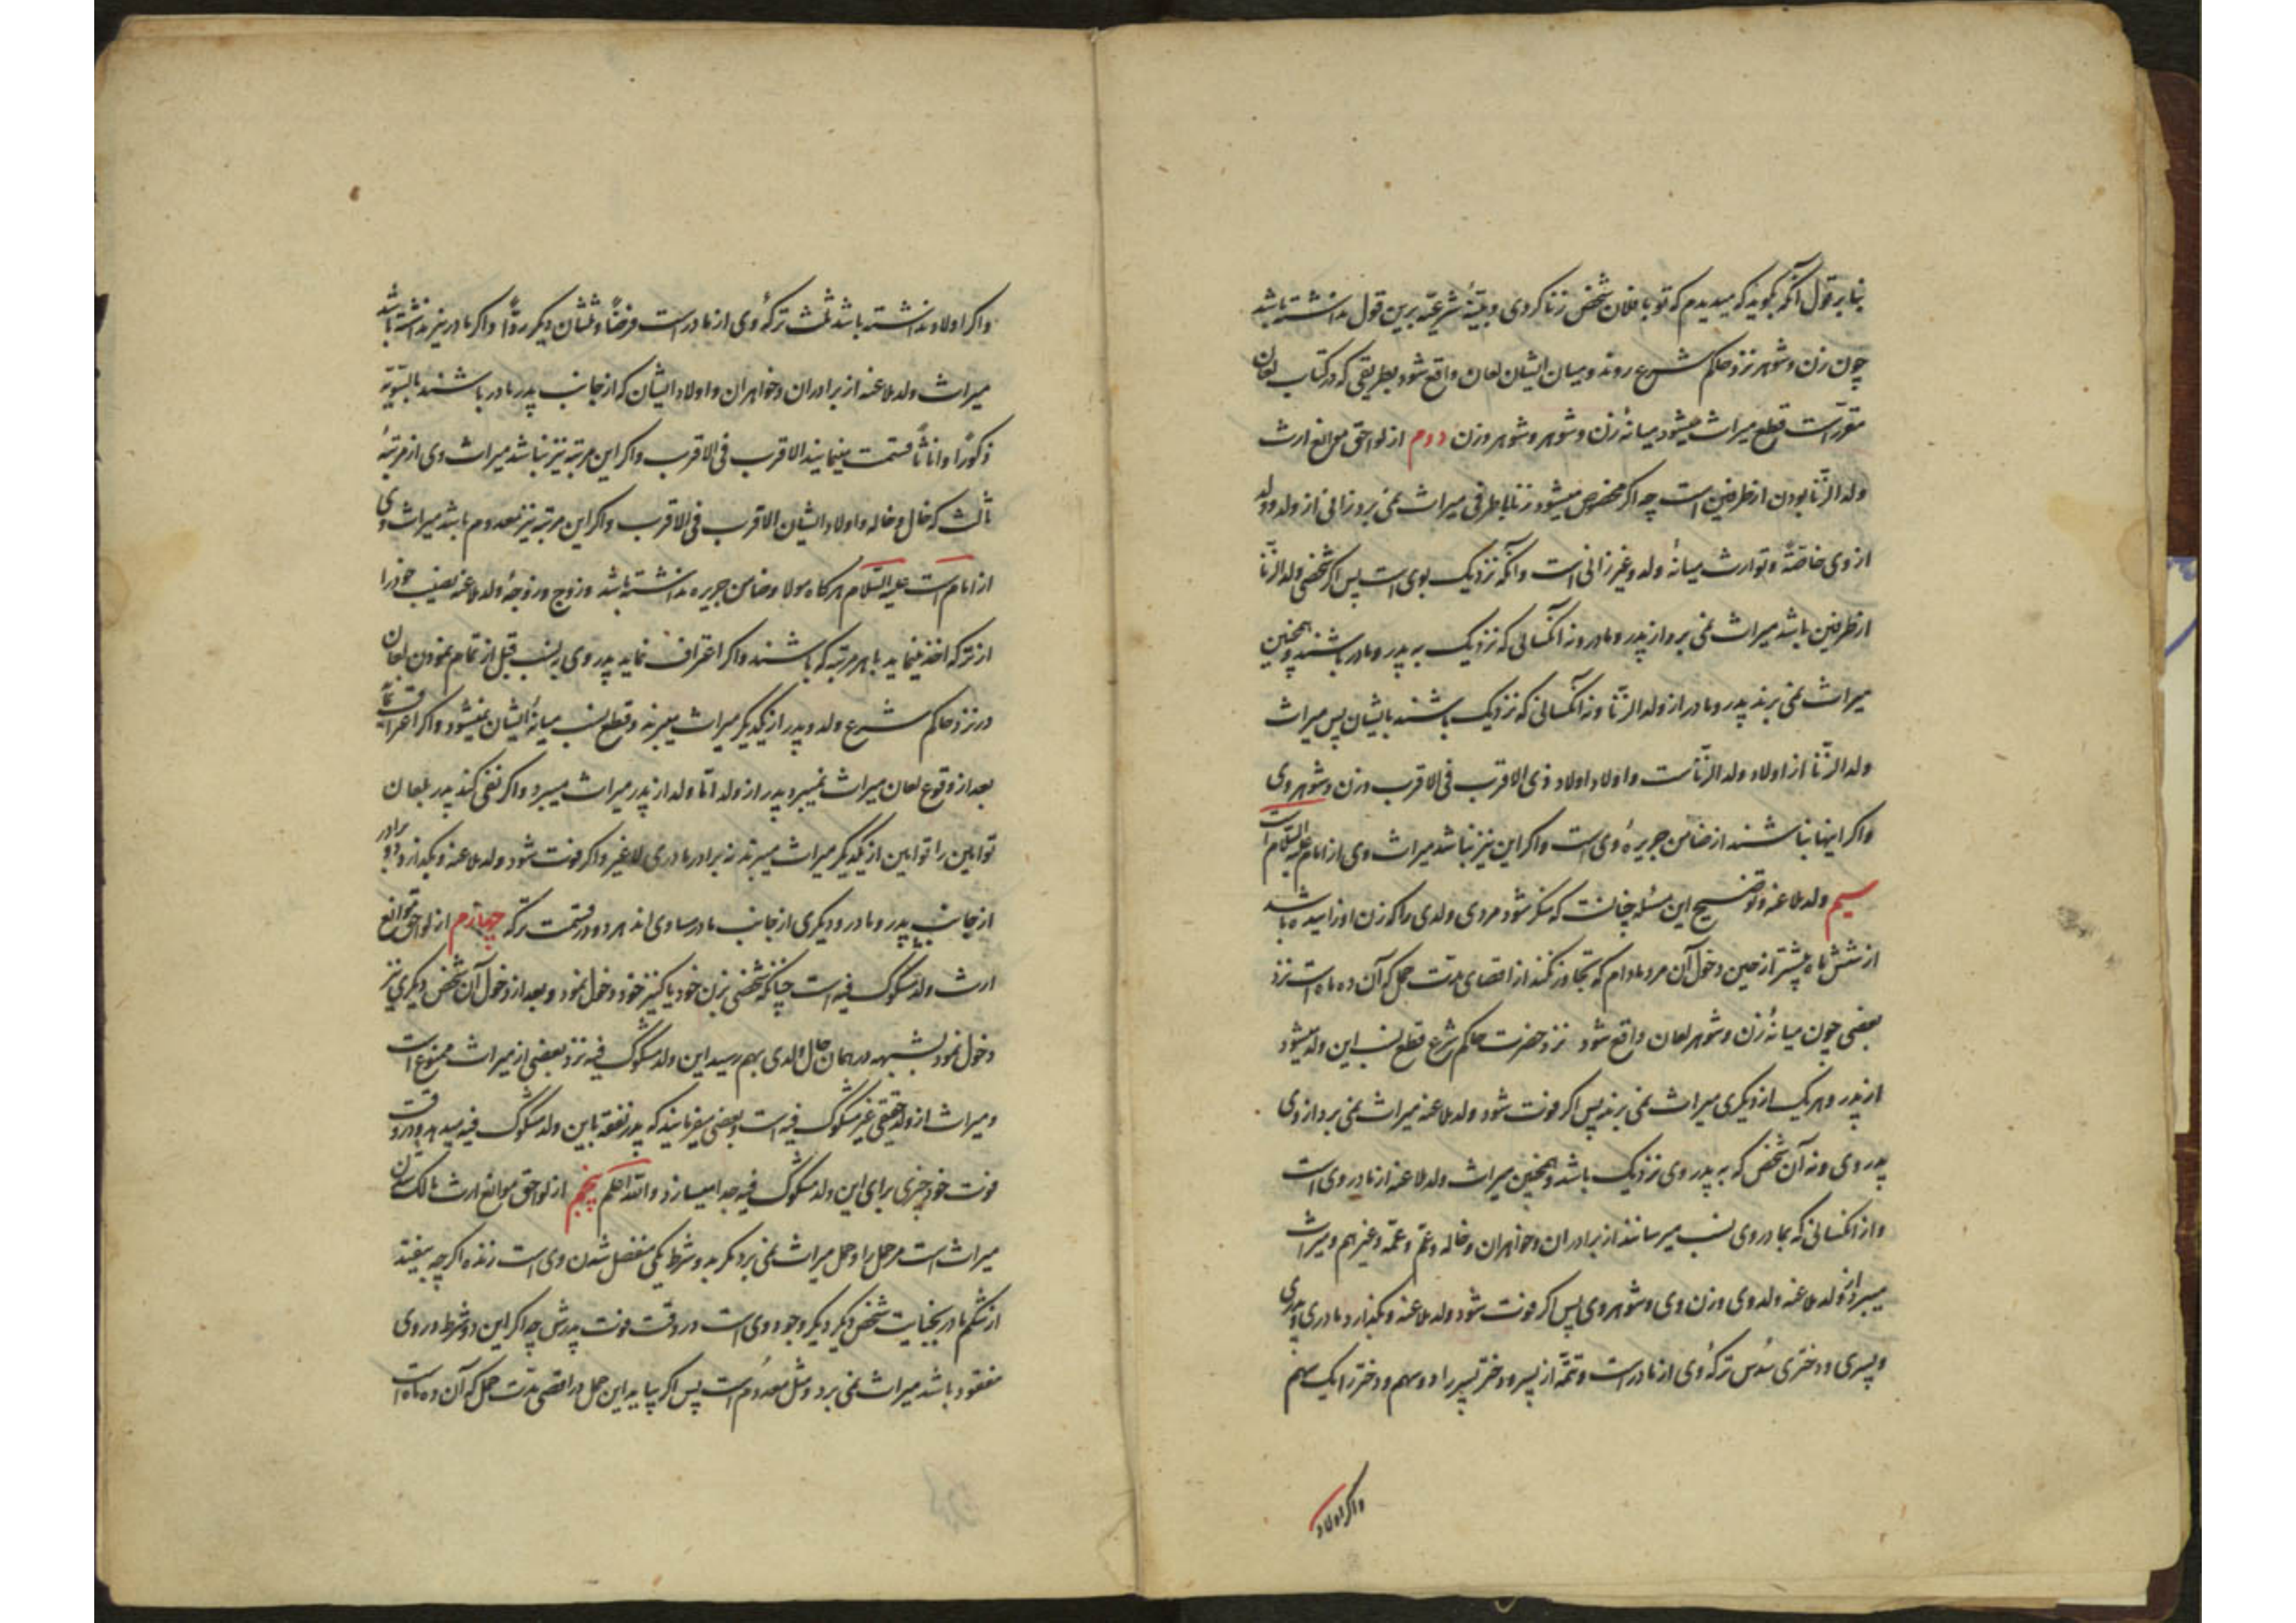 بنابر قول آنکه بگوید که میدیدم که تو با فلان شخص زنا کردی و بینهٔ شرعیّه برین قول نداشته باشد
چون زن و شوهر نزد حاکم شرع روند و میان ایشان لعان واقع شود بطریقی که در کتاب لعان
مقرر است قطع میراث میشود میانهٔ زن و شوهر و شوهر و زن دوم از لواحق موانع ارث
ولد الزّنا بودن از طرفین است چه اگر مخصوص میشود زنا باطرفی میراث نمی برد زانی از ولد و ولد
از وی خاصّةً و توارث میانهٔ ولد و غیر زانی است و آنکه نزدیک بوی است پس اگر شخصی ولد الزّنا
از طرفین باشد میراث نمی برد از پدر و مادر و نه آنکسانی که نزدیک به پدر و مادر باشند و همچنین
میراث نمی برند پدر و مادر از ولد الزّنا و نه آنکسانی که نزدیک باشند بایشان پس میراث
ولد الزّنا از اولاد ولد الزّناست و اولاد اولاد وی الاقرب فی الاقرب و زن و شوهر وی
و اگر اینها نباشند از ضامن جریرهٔ وی است و اگر این نیز نباشد میراث وی از امام علیه السّلام است
سیم ولد ملاعنه و توضیح این مسئله چنانست که منکر شود مردی ولدی را که زن او زاییده باشد
از شش ماه پیشتر از حین دخول آن مرد مادام که تجاوز نکند از اقصای مدت حمل که آن ده ماه است نزد
بعضی چون میانهٔ زن و شوهر لعان واقع شود نزد حضرت حاکم شرع قطع نسب این ولد میشود
از پدر و هر یک از دیگری میراث نمی برند پس اگر فوت شود ولد ملاعنه میراث نمی برد از وی
پدر وی و نه آن شخص که به پدر وی نزدیک باشد و همچنین میراث ولد ملاعنه از مادر وی است
و از آنکسانی که بمادر وی نسب میرسانند از برادران و خواهران و خاله و عمّ و عمّه و غیر هم و میراث
میبرد از ولد ملاعنه ولد وی و زن وی و شوهر وی پس اگر فوت شود ولد ملاعنه و بگذارد مادری و پدری
و پسری و دختری سُدس ترکهٔ وی از مادر است و تتمّه از پسر و دختر پسر را دو سهم و دختر را یک سهم
و اگر اولاد
و اگر اولاد نداشته باشد ثلث ترکهٔ وی از مادر است فرضاً و ثلثان دیگر ردّاً و اگر مادر نیز نداشته باشد
میراث ولد ملاعنه از برادران و خواهران و اولاد ایشان که از جانب پدر مادر باشند بالسّویّه
ذکوراً و اناثاً قسمت مینمایند الاقرب فی الاقرب و اگر این مرتبه نیز نباشد میراث وی از مرتبهٔ
ثالث که خال و خاله و اولاد ایشان الاقرب فی الاقرب و اگر این مرتبه نیز معدوم باشد میراث وی
از امام است علیه السّلام هرگاه مولا و ضامن جریره نداشته باشد و زوج و زوجهٔ ولد ملاعنه نصیب خود را
از ترکه اخذ مینماید با هر مرتبه که باشند و اگر اعتراف نماید پدر وی به نسب قبل از تمام نمودن لعان
در نزد حاکم شرع ولد و پدر از یکدیگر میراث میبرند و قطع نسب میانهٔ ایشان نمیشود و اگر اعتراف نماید
بعد از وقوع لعان میراث نمیبرد پدر از ولد امّا ولد از پدر میراث میبرد و اگر نفی کند پدر بلعان
توامین را توامین از یکدیگر میراث میبرند نه برادر مادری لا غیر و اگر فوت شود ولد ملاعنه و بگذارد دو برادر
از جانب پدر و مادر و دیگری از جانب مادر مساوی اند هر دو در قسمت ترکه چهارم از لواحق موانع
ارث ولد مشکوک فیه است چنانکه شخصی بزن خود یا کنیز خود دخول نمود و بعد از دخول آن شخص دیگری نیز
دخول نمود بشبهه در همان حال ولدی بهم رسید این ولد مشکوک فیه نزد بعضی از میراث ممنوع است
و میراث از ولد حقیقی غیر مشکوک فیه است و بعضی میفرمایند که پدر نفقه باین ولد مشکوک فیه میدهد و در وقت
فوت خود چیزی برای این ولد مشکوک فیه جدا میسازد و الله اعلم پنجم از لواحق موانع ارث مالک شدن
میراث است مر حمل را و حمل میراث نمی برد مگر بدو شرط یکی منفصل شدن وی است زنده اگر چه بیفتد
از شکم مادر بجنایت شخص دیگر و دیگر وجود وی است در وقت فوت پدرش چه اگر این دو شرط در وی
مفقود باشد میراث نمی برد و مثل معدوم است پس اگر بیاید این حمل در اقصی مدّت حمل که آن ده ماه است